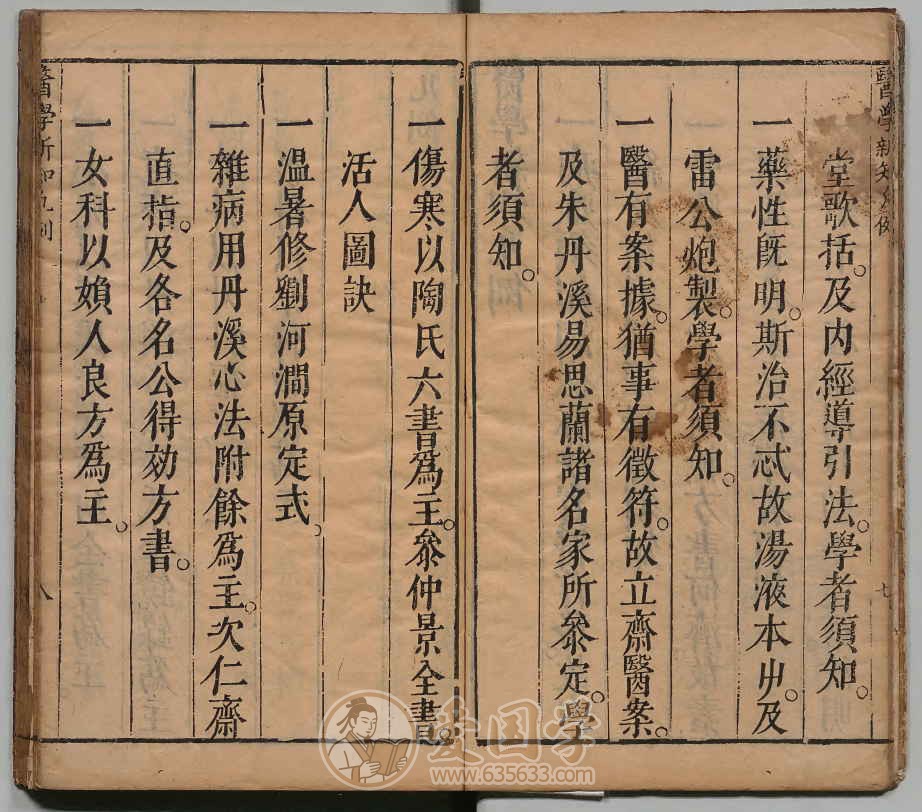 堂歌括。及内經導引法。學者須知。
一藥性既明。斯治不忒故湯液本艸。及
雷公炮製。學者須知。
一醫有案據。猶事有徵符。故立齋醫案。
及朱丹溪易思蘭諸名家所參定。學
者須知。
一傷寒以陶氏六書爲主。參仲景全書。
活人圖訣
一温暑修劉河澗原定式。
一雜病用丹溪心法附餘爲主。次仁齋
直指。及各名公得効方書。
一女科以婦人良方爲主。
八
爱国学
www.635633.com